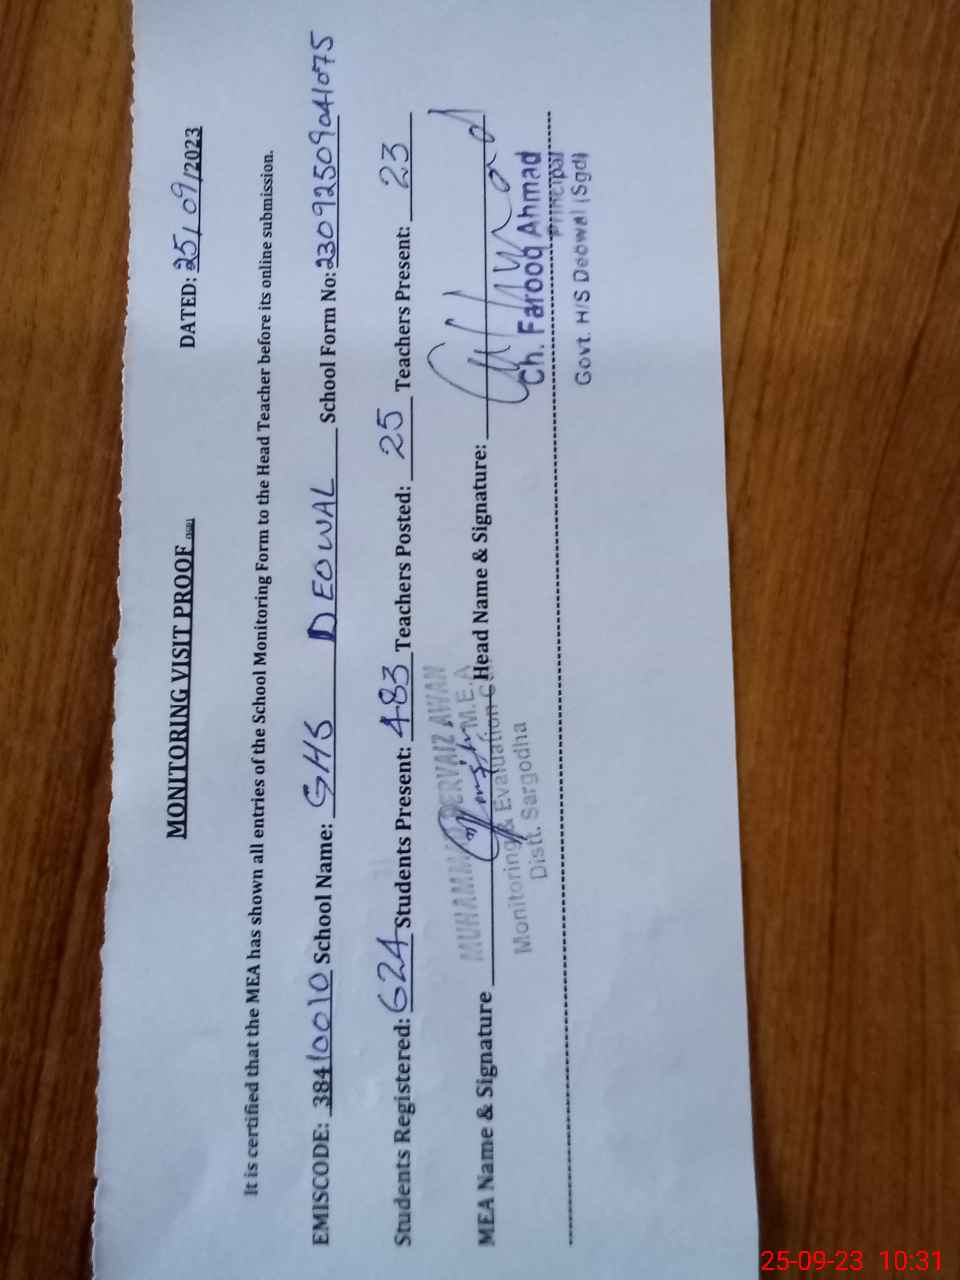 MONITORING VISIT PROOF
DATED: 25/09/2023
It is certified that the MEA has shown all entries of the School Monitoring Form to the Head Teacher before its online submission.
EMISCODE: 38410010 School Name: GHS DEOWAL School Form No: 23092509041075
Students Registered: 624 Students Present: 483 Teachers Posted: 25 Teachers Present: 23
MEA Name & Signature Head Name & Signature:
MUHAMMAD PERVAIZ AWAN
M.E.A
Monitoring & Evaluation
Distt. Sargodha
Ch. Farooq Ahmad
Principal
Govt. H/S Deowal (Sgd)
25-09-23 10:31